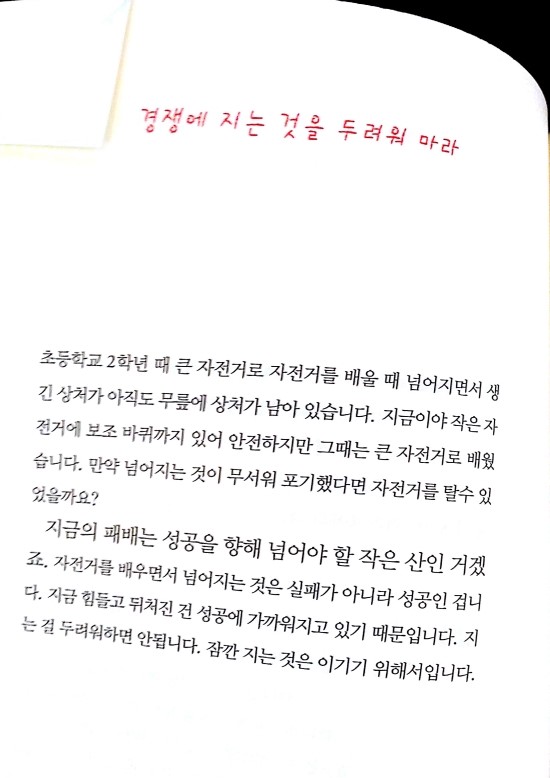 경쟁에 지는 것을 두려워 마라
초등학교 2학년 때 큰 자전거로 자전거를 배울 때 넘어지면서 생
긴 상처가 아직도 무릎에 상처가 남아 있습니다. 지금이야 작은 자
전거에 보조 바퀴까지 있어 안전하지만 그때는 큰 자전거로 배웠
습니다. 만약 넘어지는 것이 무서워 포기했다면 자전거를 탈수 있
었을까요?
지금의 패배는 성공을 향해 넘어야 할 작은 산인 거겠
죠. 자전거를 배우면서 넘어지는 것은 실패가 아니라 성공인 겁니
다. 지금 힘들고 뒤처진 건 성공에 가까워지고 있기 때문입니다. 지
는 걸 두려워하면 안됩니다. 잠깐 지는 것은 이기기 위해서입니다.